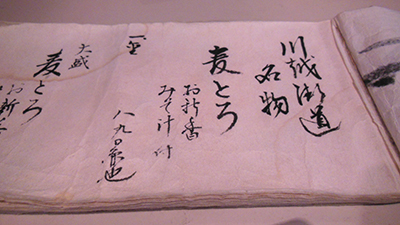 川越街道
名物
麦とろ
お新香
みそ汁付
八九〇円也
一、
大盛
麦とろ
お新香